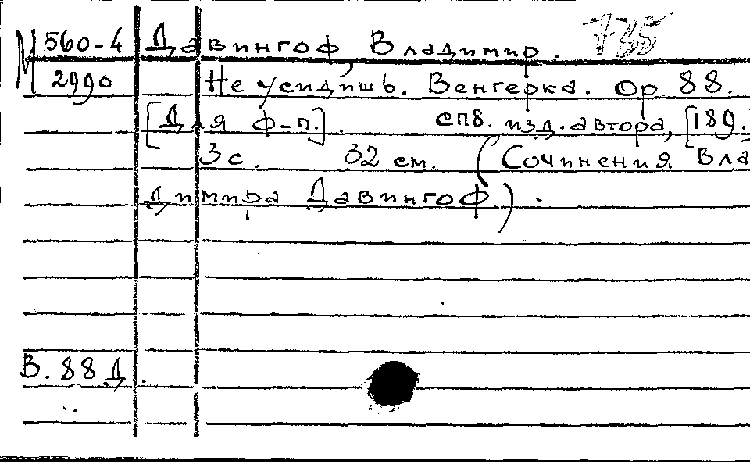 М 560-4 Давингоф, Владимир. 735
2990 Не усидишь. Венгерка. Ор 88.
[Для ф-п.]. СПб. изд. автора, [189.
3 с. 32 см. (Сочинения Вла
димира Давингоф).
В. 88 Д.